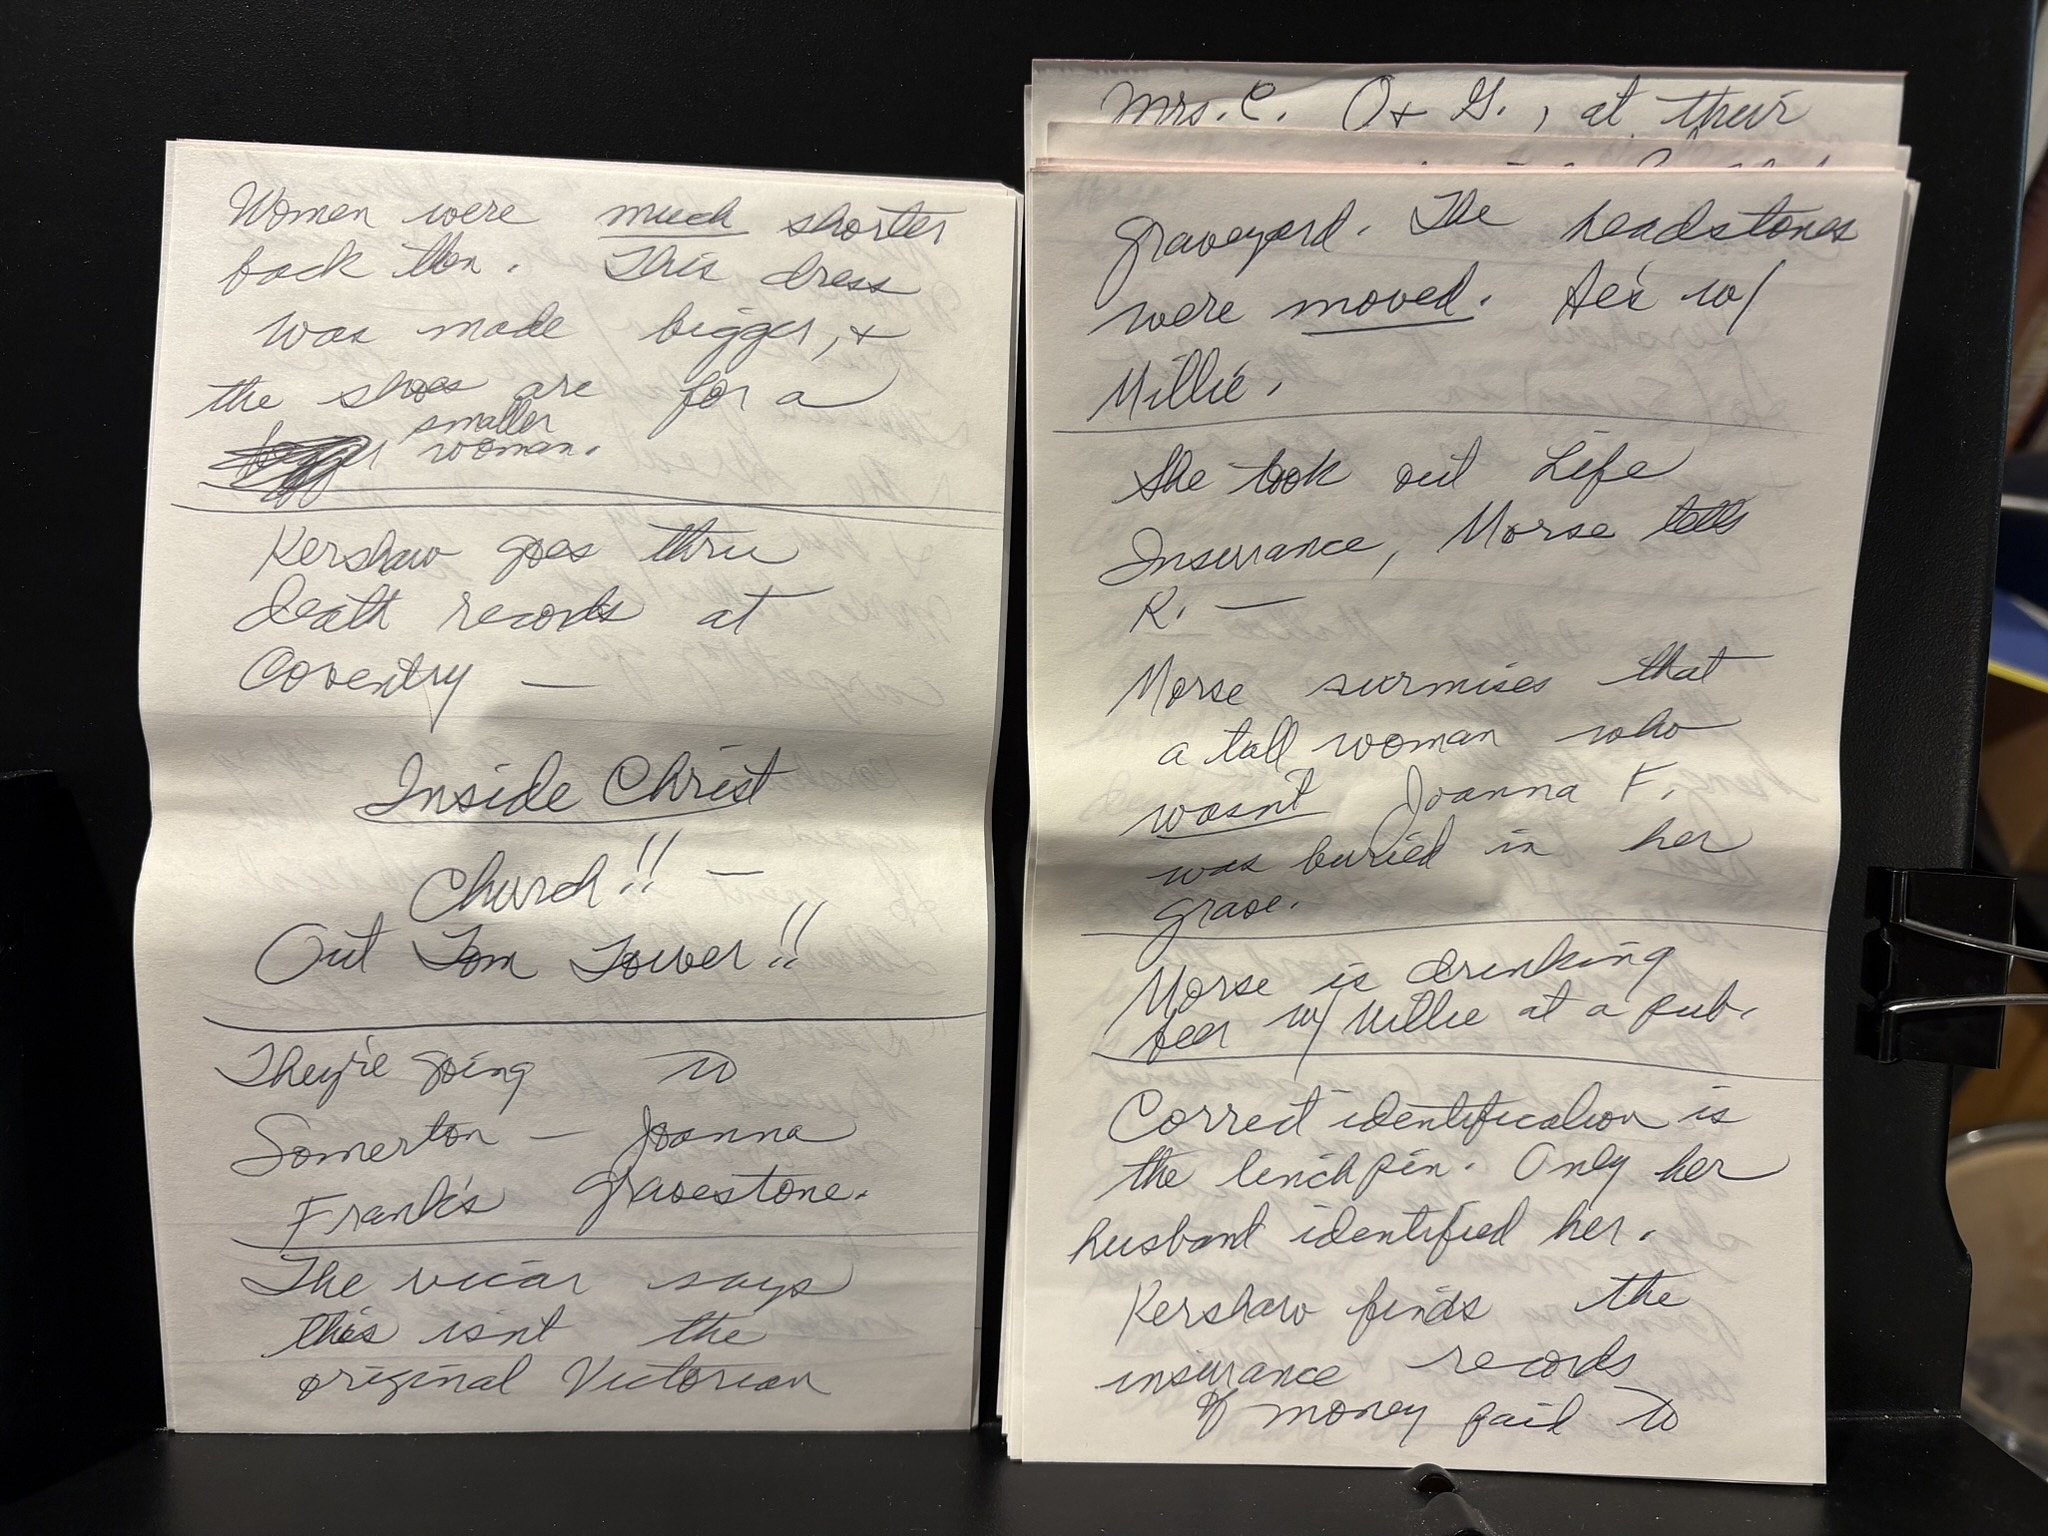 Women were much shorter
back then. This dress
was made bigger, +
the shoes are for a
smaller
woman.
Kershaw goes thru
death records at
Coventry —
Inside Christ
Church!! —
Out Tom Tower!!
They're going to
Somerton — Joanna
Frank's gravestone.
The vicar says
this isn't the
original Victorian
Mrs. C. O + G., at their
graveyard. The headstones
were moved. He's w/
Millie.
She took out Life
Insurance, Morse tells
R. —
Morse surmises that
a tall woman who
wasn't Joanna F.
was buried in her
grave.
Morse is drinking
beer w/ Millie at a pub.
Correct identification is
the linchpin. Only her
husband identified her.
Kershaw finds the
insurance records
of money paid to